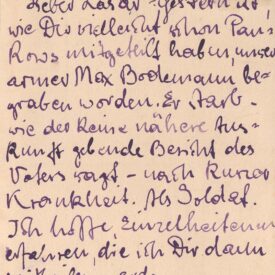 Lieber Lasar - gestern ist,
wie Dir vielleicht schon Pan-
kows mitgeteilt haben, unser
armer Max Bodemann be-
graben worden. Er starb -
wie der keine nähere Aus-
kunft gebende Bericht des
Vaters sagt - nach kurzer
Krankheit. Als Soldat.
Ich hoffe, Einzelheiten zu
erfahren, die ich Dir dann